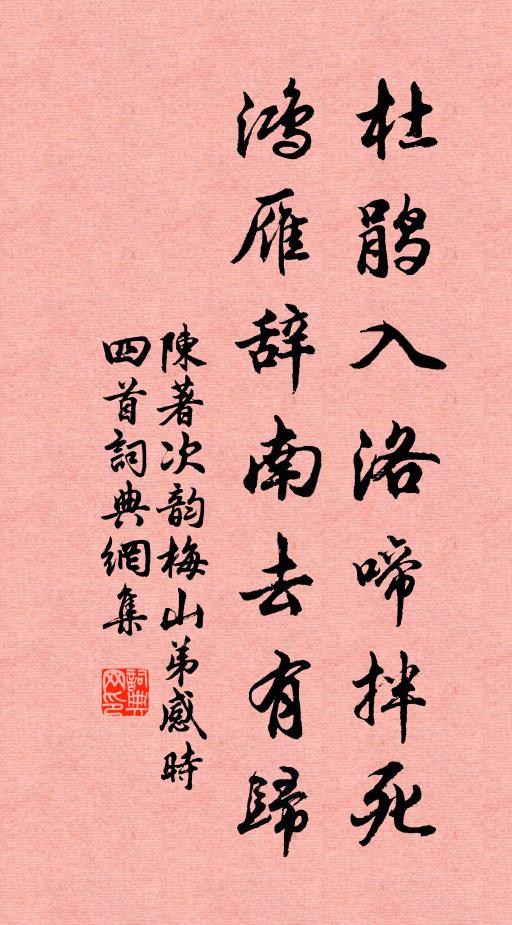 杜鹃入洛啼拌死
鸿雁辞南去有歸
陳著次韵梅山弟感時
四首詞典網集
詞典
网印